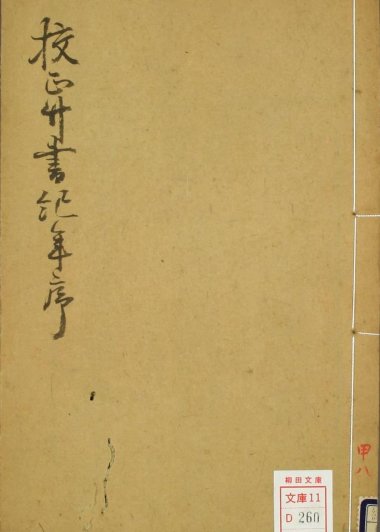 校正竹書紀年序
甲八
柳田文庫
文庫11
D 260